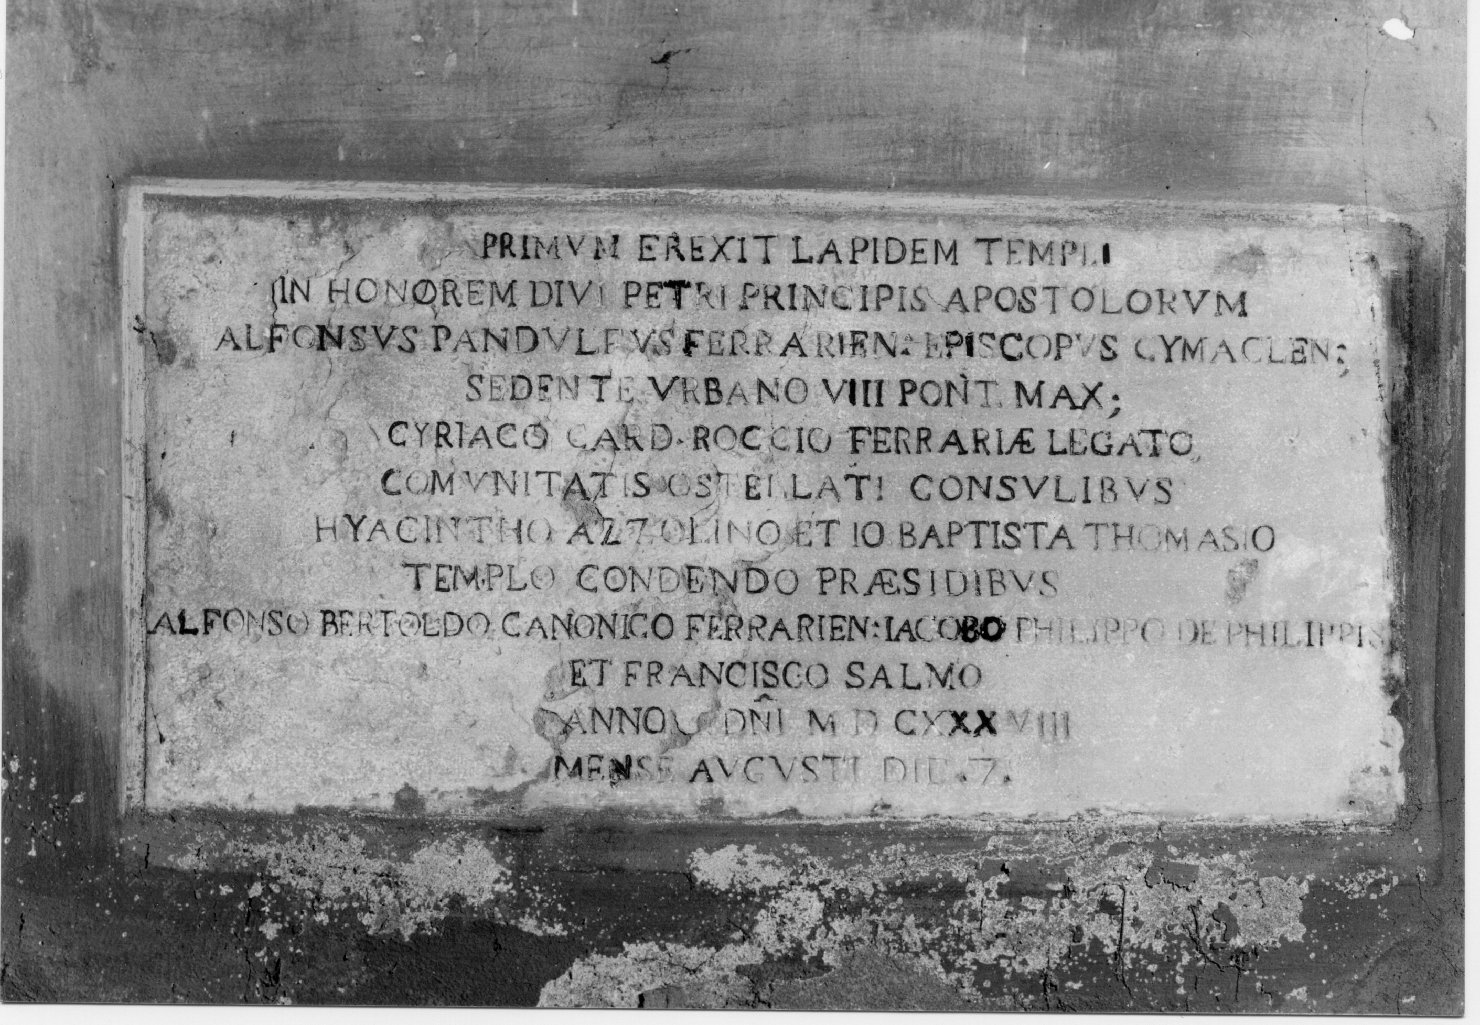 PRIMVM EREXIT LAPIDEM TEMPLI
IN HONOREM DIVI PETRI PRINCIPIS APOSTOLORVM
ALFONSVS PANDVLFVS FERRARIEN: EPISCOPVS CYMACLEN;
SEDENTE VRBANO VIII PONT. MAX;
CYRIACO CARD. ROCCIO FERRARIÆ LEGATO,
COMVNITATIS OSTELLATI CONSVLIBVS
HYACINTHO AZZOLINO ET IO BAPTISTA THOMASIO
TEMPLO CONDENDO PRÆSIDIBVS
ALFONSO BERTOLDO CANONICO FERRARIEN: IACOBO PHILIPPO DE PHILIPPIS
ET FRANCISCO SALMO
ANNO DÑI M D CXXXVIII
MENSE AVGVSTI DIE .7.